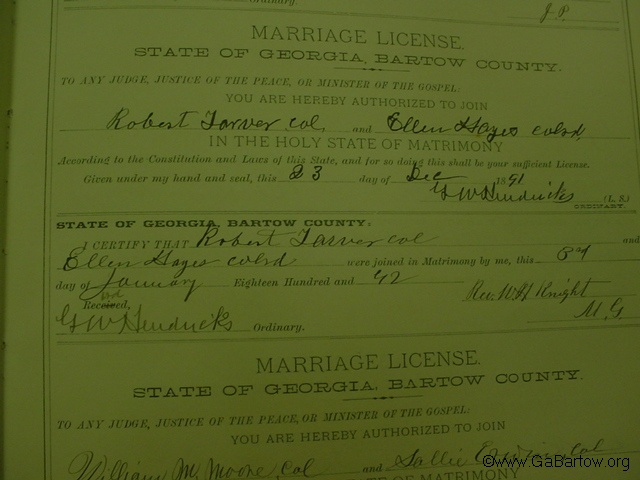 Ordinary.
J.P.
MARRIAGE LICENSE.
STATE OF GEORGIA, BARTOW COUNTY.
TO ANY JUDGE, JUSTICE OF THE PEACE, OR MINISTER OF THE GOSPEL:
YOU ARE HEREBY AUTHORIZED TO JOIN
Robert Tarver col, and Ellen Hayes colord,
IN THE HOLY STATE OF MATRIMONY
According to the Constitution and Laws of this State, and for so doing this shall be your sufficient License.
Given under my hand and seal, this 23 day of Dec 1891
G W Hendricks (L. S.)
ORDINARY.
STATE OF GEORGIA, BARTOW COUNTY:
I CERTIFY THAT Robert Tarver col and
Ellen Hayes colord were joined in Matrimony by me, this
day of January Eighteen Hundred and 92
Rev. W H Knight
Received, M. G.
G W Hendricks Ordinary.
MARRIAGE LICENSE.
STATE OF GEORGIA, BARTOW COUNTY.
TO ANY JUDGE, JUSTICE OF THE PEACE, OR MINISTER OF THE GOSPEL:
YOU ARE HEREBY AUTHORIZED TO JOIN
William M. Moore col and Sallie col
IN THE HOLY STATE OF MATRIMONY
©www.GaBartow.org